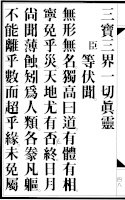 三寶三界一切眞靈
臣等伏聞
無形無名獨高曰道有體有相
寧免乎災天地尤有否終日月
尙聞薄蝕矧爲人類各秉凡軀
不能離乎數而超乎緣未免屬